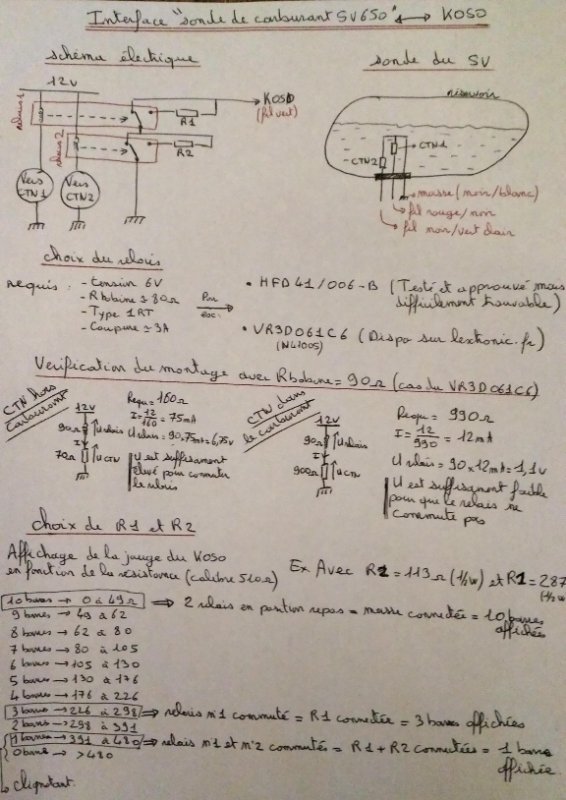 Interface "sonde de carburant SV650" ↔ KOSO
schéma électrique
sonde du SV
12V
relais 1
KOSO
(fil vert)
R1
relais 2
R2
Vers CTN1
Vers CTN2
réservoir
CTN1
CTN2
masse (noir/blanc)
fil rouge/noir
fil noir/vert clair
choix du relais
requis : - tension 6V
- Rbobine ≃ 80Ω
- Type 1RT
- Coupure ≃ 3A
• HFD41/006-B (Testé et approuvé mais
difficilement trouvable)
• VR3D061C6 (Dispo sur lextronic.fr)
(N41005)
Vérification du montage avec Rbobine = 90Ω (cas du VR3D061C6)
CTN hors
carburant
12V
90Ω
U relais
I
70Ω
U CTN
Requ = 160Ω
I = 12/160 = 75mA
U relais = 90,75mA = 6,75V
U est suffisament
élevé pour commuter
le relais
CTN dans
le carburant
12V
90Ω
U relais
I
900Ω
U CTN
Requ = 990Ω
I = 12/990 = 12mA
U relais = 90 x 12mA = 1,1V
U est suffisament faible
pour que le relais ne
commute pas
choix de R1 et R2
Affichage de la jauge du KOSO
en fonction de la résistance (calibre 510Ω)
Ex Avec R2 = 113Ω (1/2W) et R1 = 287
(1/2W
10 barres → 0 à 49Ω ⇒ 2 relais en position repos = masse connectée = 10 barres
affichées
9 barres → 49 à 62
8 barres → 62 à 80
7 barres → 80 à 105
6 barres → 105 à 130
5 barres → 130 à 176
4 barres → 176 à 226
3 barres → 226 à 298 ⇒ relais n°1 commuté = R1 connectée = 3 barres affichées
2 barres → 298 à 391
1 barre → 391 à 480 ⇒ relais n°1 et n°2 commutés = R1 + R2 connectées = 1 barre
affichée
0 barre → >480
↳ clignotant